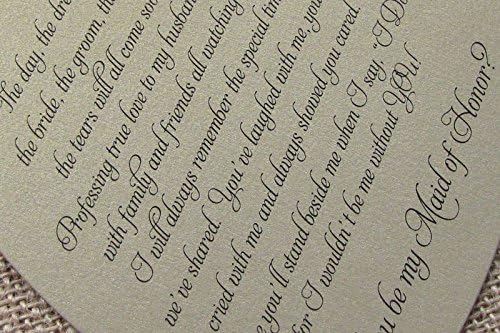 The day, the dre
the bride, the groom, th
the tears will all come soo
Professing true love to my husban
with family and friends all watching
I will always remember the special time
we've shared. You've laughed with me, you
cried with me and always showed you cared.
e you'll stand beside me when I say, "I Do
for I wouldn't be me without YOU!
u be my Maid of Honor?